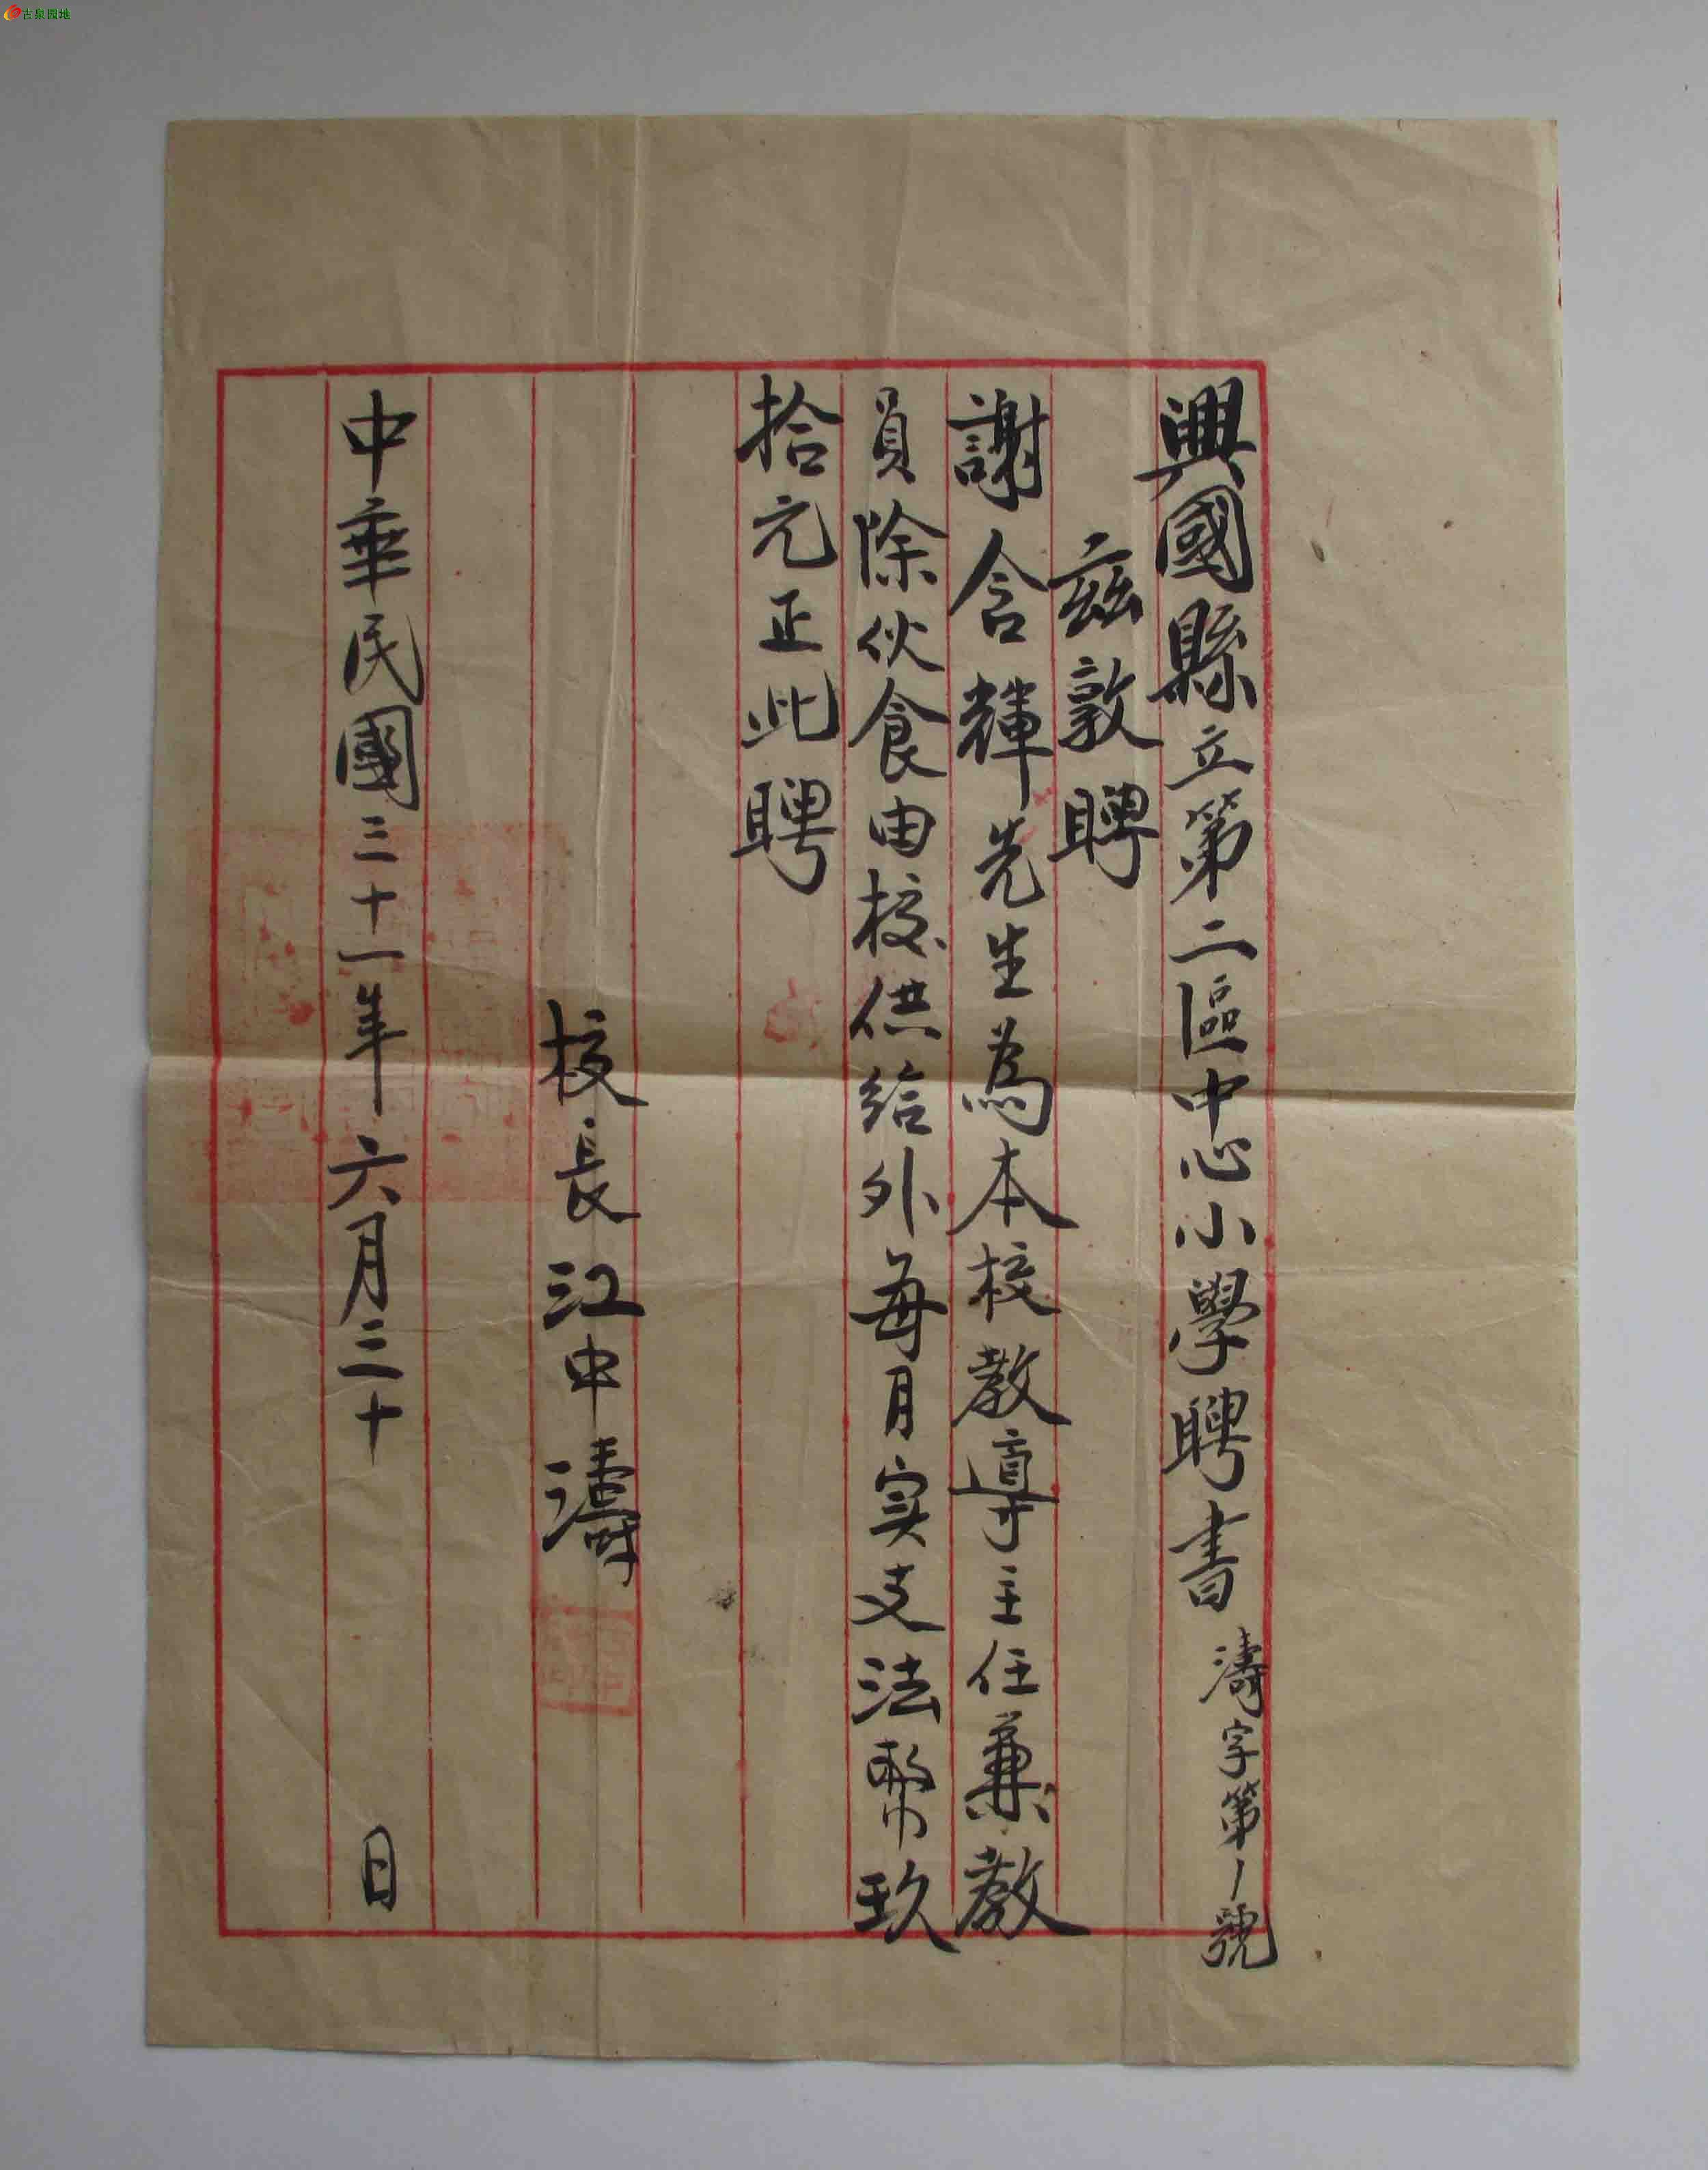 古泉园地
興國縣立第二區中心小學聘書 濤字第1號
茲敦聘
謝含輝先生為本校教導主任兼教
員除伙食由校供給外每月实支法幣玖
拾元正此聘
校長江中濤
中華民國三十一年六月三十日